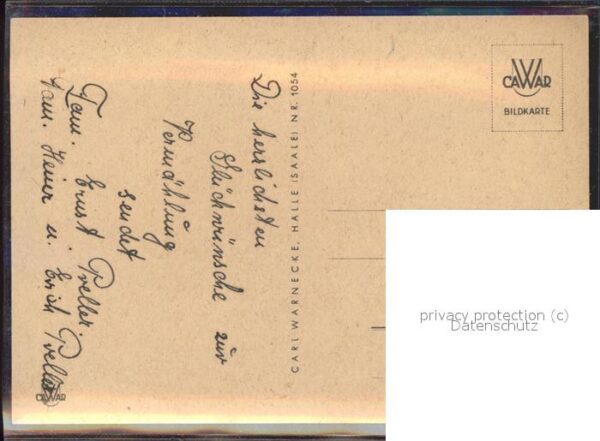 Die herzlichsten
Glückwünsche zur
Vermählung
sendet
Fam. Ernst Preller.
Fam. Heiner u. Erich Preller
CARL WARNECKE, HALLE (SAALE) NR. 1054
CAWAR
BILDKARTE
CAWAR
privacy protection (c)
Datenschutz